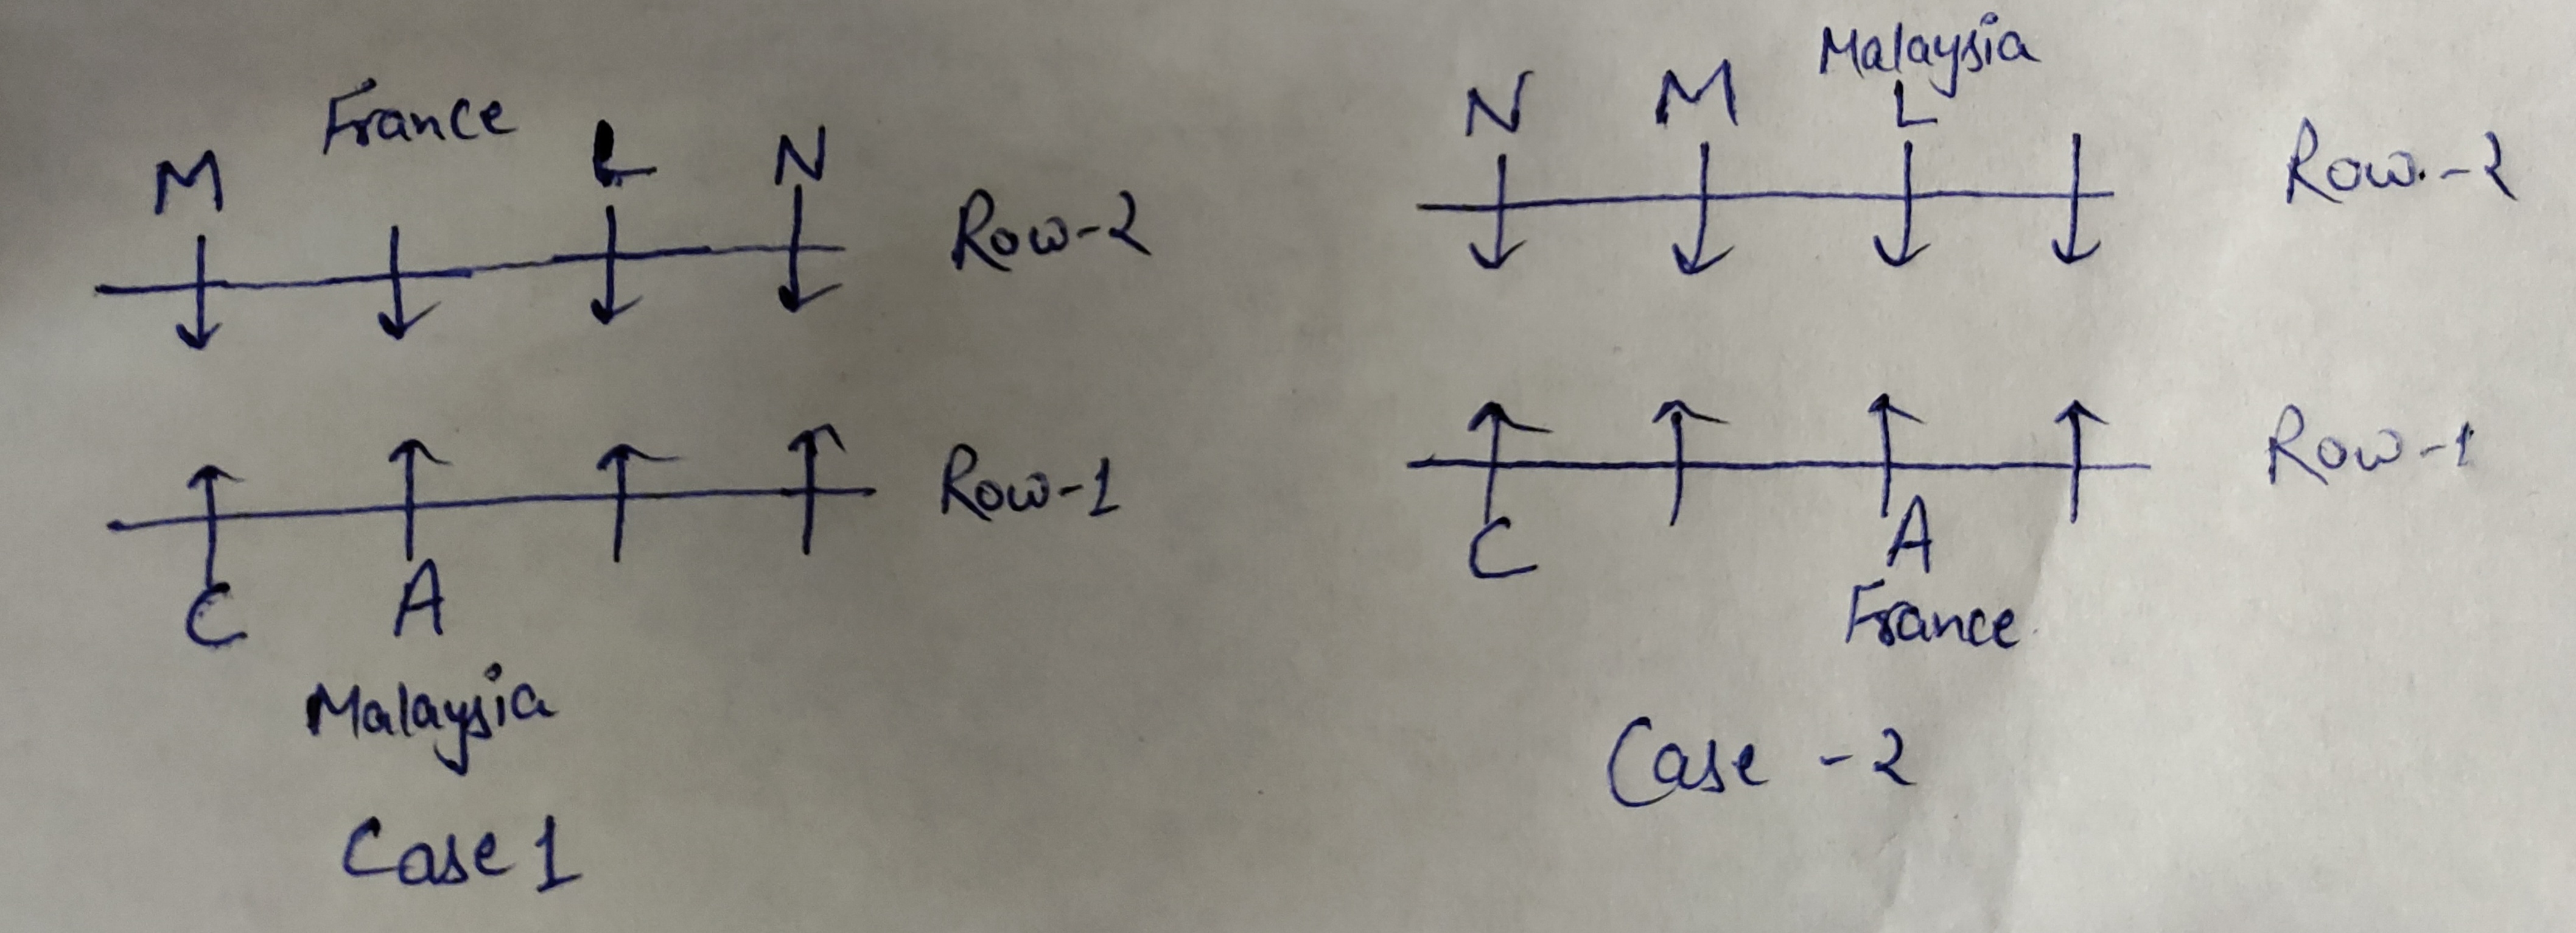 M France L N Row-2
C A Row-1
Malaysia
Case 1
Malaysia
N M L Row-2
C A Row-1
France
Case - 2